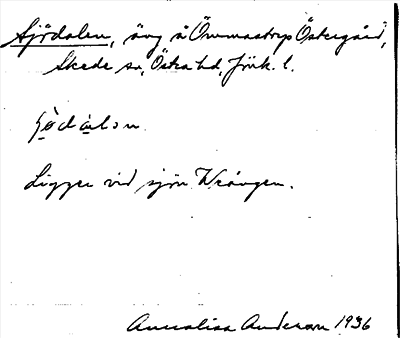 Sjödalen, äng å Ömmestorps Östergård,
Skede sn, Östra hd, Jönk. l.
sjödàlən
Ligger vid sjön Wrången.
Annalisa Anderson 1936